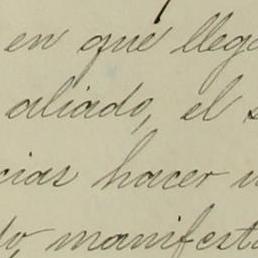 en que lleg
aliado, el
cias hacer
do, manifest